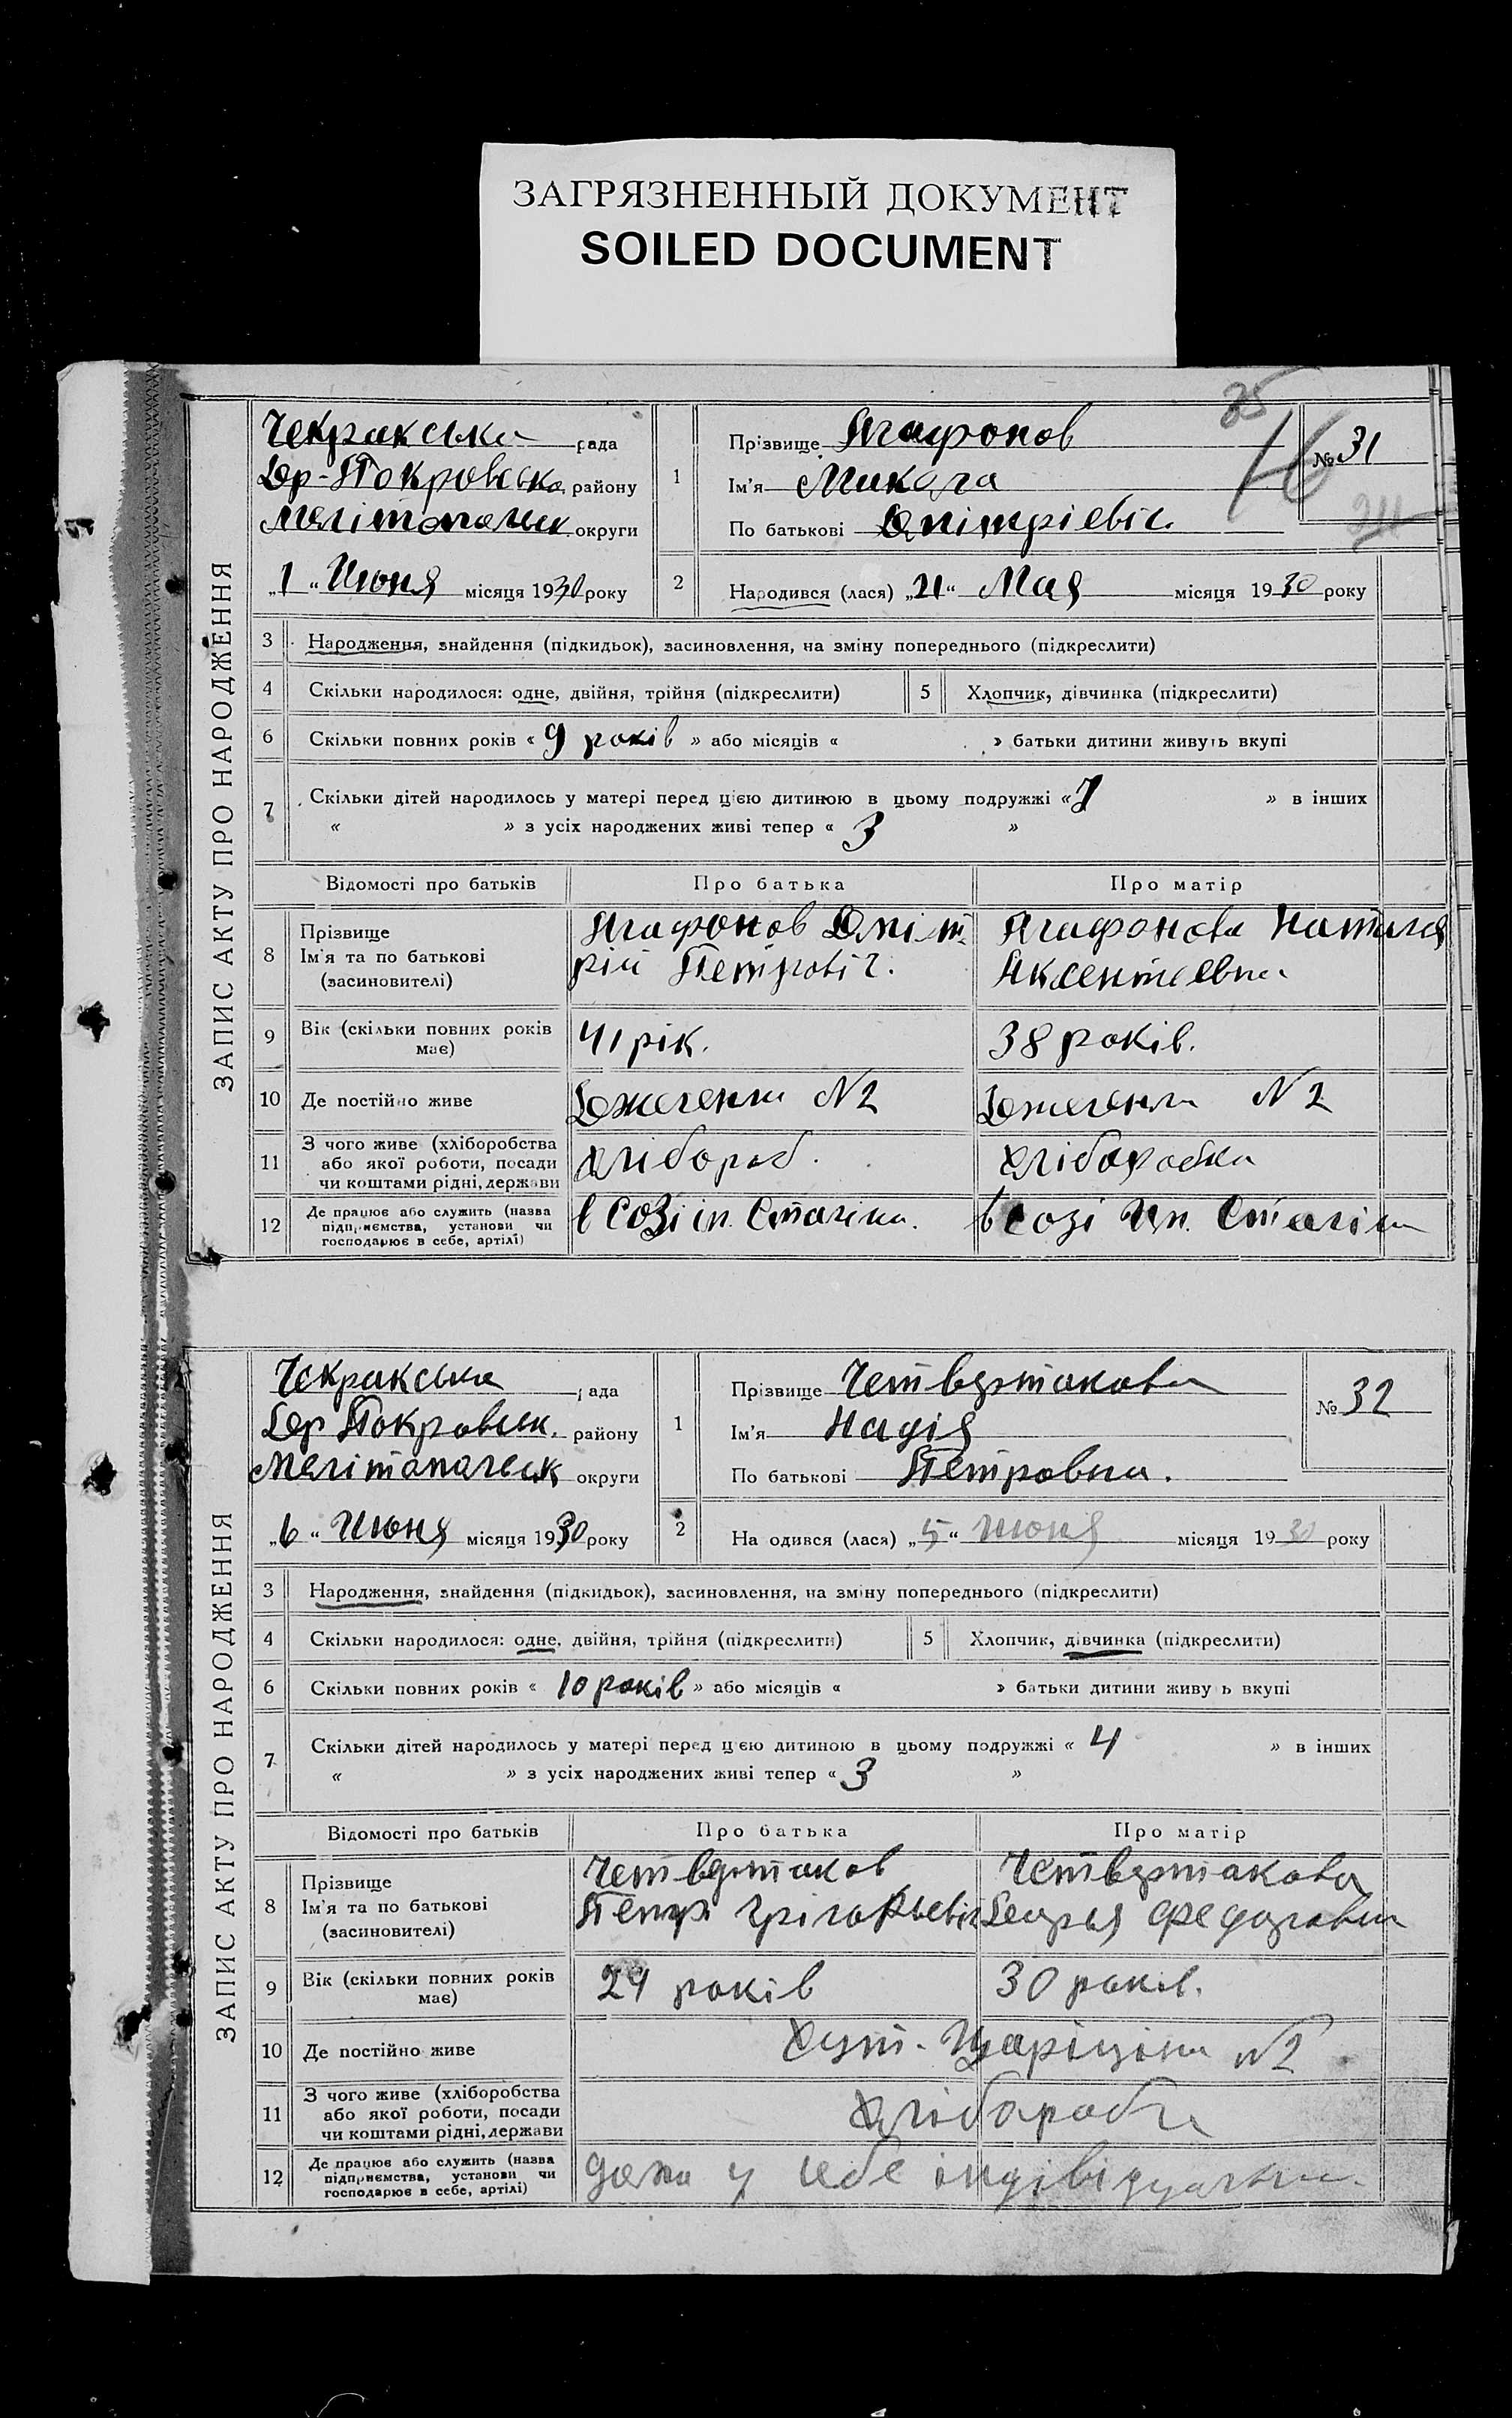 ЗАГРЯЗНЕННЫЙ ДОКУМЕНТ
SOILED DOCUMENT
35
16
ЗАПИС АКТУ ПРО НАРОДЖЕННЯ
Чекракська рада
Вр-Покровська району
Мелітопольськ округи
„1“ Июня місяця 1930 року
1 Прізвище Агафонов
Ім'я Микола
По батькові Дмітріевіч
№ 31
2 Народився (лася) „21“ Мая місяця 1930 року
3 Народження, знайдення (підкидьок), засиновлення, на зміну попереднього (підкреслити)
4 Скільки народилося: одне, двійня, трійня (підкреслити) 5 Хлопчик, дівчинка (підкреслити)
6 Скільки повних років « 9 років » або місяців « » батьки дитини живуть вкупі
7 Скільки дітей народилось у матері перед цією дитиною в цьому подружжі « 7 » в інших
« » з усіх народжених живі тепер « 3 »
Відомості про батьків Про батька Про матір
8 Прізвище Ім'я та по батькові (засновителі)
Агафонов Дміт
рій Петровіч.
Агафонова Наталя
Аксентиевна
9 Вік (скільки повних років має) 41 рік. 38 років.
10 Де постійно живе N2 N2
11 З чого живе (хліборобства або якої роботи, посади чи коштами рідні, держави хлібороб. хлібаробка
12 Де працює або служить (назва підприємства, установи чи господарює в себе, артілі) в Созі ім. Сталіна. в созі Им. Сталіна
ЗАПИС АКТУ ПРО НАРОДЖЕННЯ
Чекракська рада
Вр Покровськ. району
Мелітопольськ округи
„6“ Июня місяця 1930 року
1 Прізвище Четвертакова
Ім'я Надія
По батькові Петровна.
№ 32
2 На одився (лася) „5“ Июня місяця 1930 року
3 Народження, знайдення (підкидьок), засиновлення, на зміну попереднього (підкреслити)
4 Скільки народилося: одне, двійня, трійня (підкреслити) 5 Хлопчик, дівчинка (підкреслити)
6 Скільки повних років « 10 років » або місяців « » батьки дитини живу ь вкупі
7 Скільки дітей народилось у матері перед цією дитиною в цьому подружжі « 4 » в інших
« » з усіх народжених живі тепер « 3 »
Відомості про батьків Про батька Про матір
8 Прізвище Ім'я та по батькові (засиновителі)
Четвертаков
Петр Грігорьевіч
Четвертакова
Федоровна
9 Вік (скільки повних років має) 29 років 30 років.
10 Де постійно живе Хут. Царіціна N2
11 З чого живе (хліборобства або якої роботи, посади чи коштами рідні, держави хлібароби
12 Де працює або служить (назва підприємства, установи чи господарює в себе, артілі) дома у себе індівідуально.